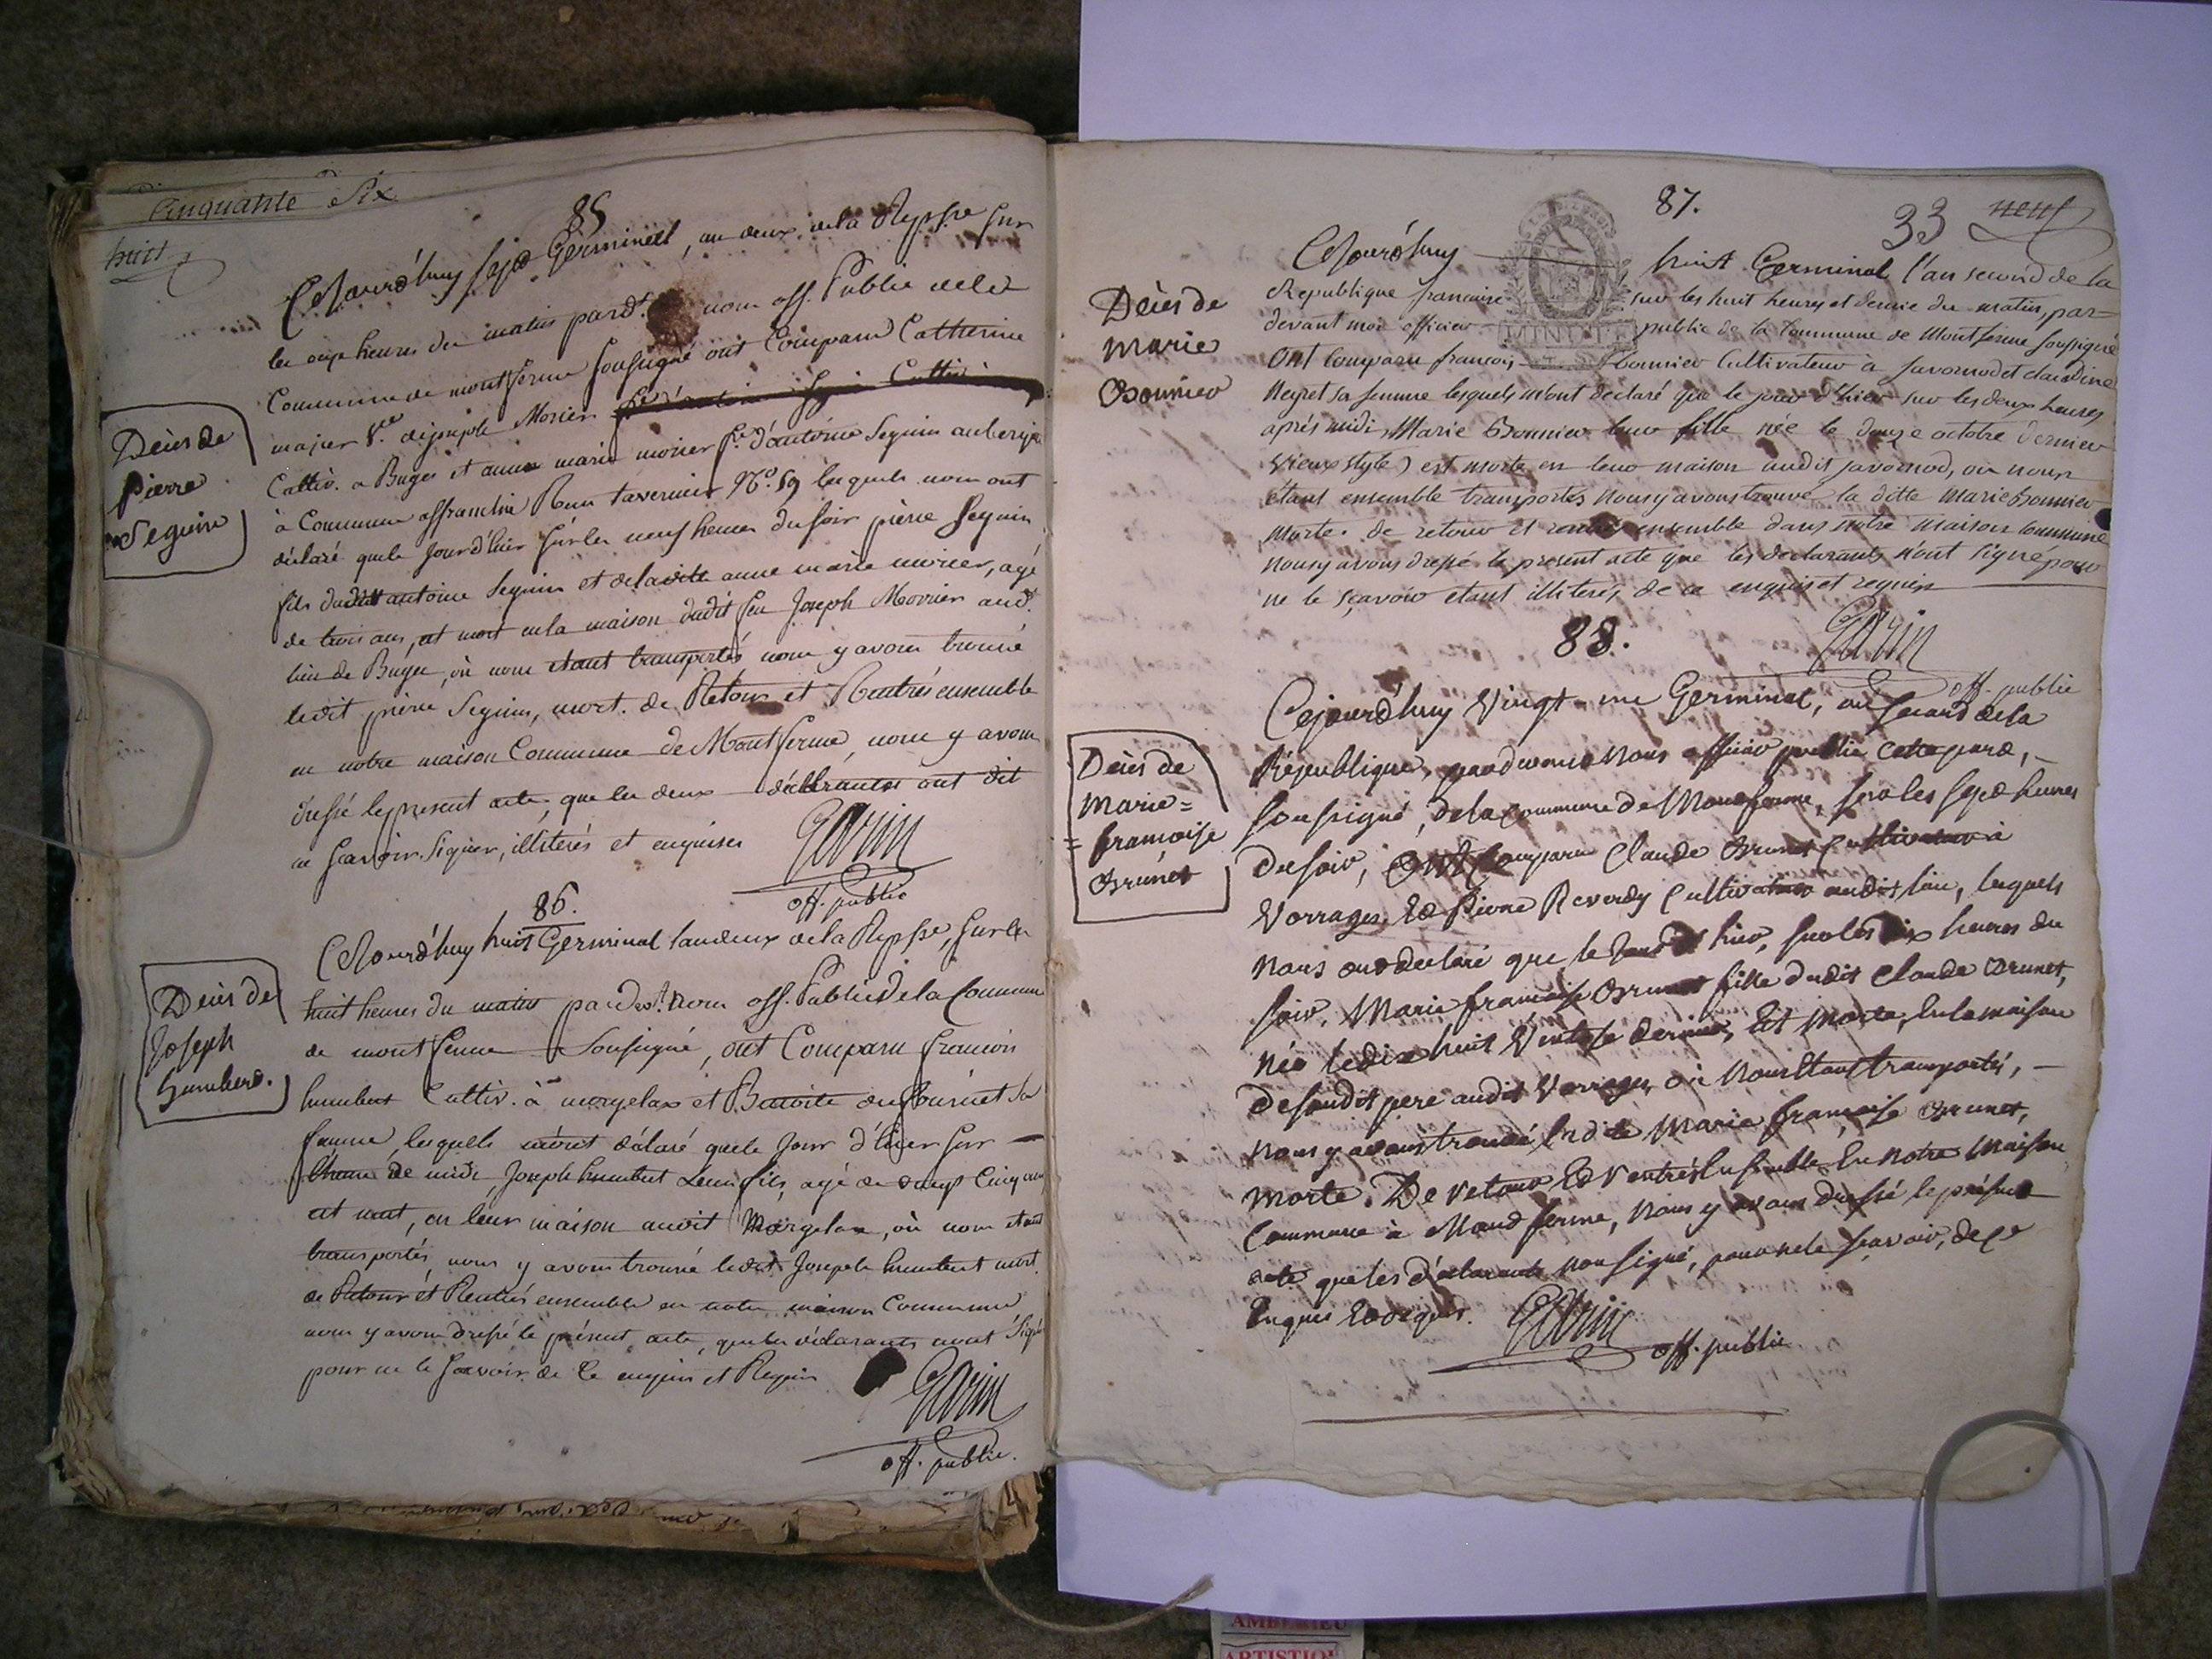 Cinquante Six
huit
85
Cejourd'huy sept Germinal, an deux de la Rep. fse sur
les onze heures du matin pard.t nous off. Public de la
Commune de montferme soussigné ont Comparu Catherine
majer v.ve de joseph Morier
Cultiv. a Buges et anne marie morier f.e d'antoine Seguin auberg.
à Commune affranchie Rue tavernier N.o 59 lesquels nous ont
déclaré que le jour d'hier sur les neuf heures du soir pierre Seguin
fils dudit antoine Seguin et de laditte anne marie morier, agé
de trois ans, est mort en la maison dudit feu Joseph Morier aud.t
lieu de Buges, où nous etant transportés, nous y avons trouvé
ledit pierre Seguin, mort. de Retour et Rentrés ensemble
en notre maison Commune de Montferme, nous y avons
dressé le present acte, que les deux déclarantes ont dit
ne sçavoir Signer, illiterés et enquises
Garin
off. public
Décès de
Pierre
Seguin
86.
Cejourd'huy huit Germinal l'an deux de la Rep fse, sur les
huit heures du matin pardev.t Nous off. Public de la Commune
de montferme Soussigné, ont Comparu françois
humbert Cultiv. à morgelas et Benoite dufournet sa
femme, lesquels m'ont déclaré que le Jour d'hier sur
l'heure de midi, Joseph humbert Leur fils, agé de vingt Cinq ans
est mort, en leur maison audit Morgelas, où nous etant
transportés, nous y avons trouvé ledit Joseph humbert mort.
de Retour et Rentrés ensemble en notre maison Commune
nous y avons dressé le présent acte, que les déclarants n'ont Signé
pour ne le sçavoir de Ce enquis et Requis
Garin
off. public.
Décès de
Joseph
humbert.
87.
33 neuf
Cejourd'huy huit Germinal l'an second de la
Republique francaise sur les huit heures et demie du matin, par=
devant moi officier public de la Commune de Montferme soussigné
Ont Comparu francois Bonnier Cultivateur à Javornod et claudine
Neyret sa femme lesquels m'ont déclaré que le jour d'hier sur les deux heures
après midi, Marie Bonnier leur fille née le douze octobre dernier
vieux style) est morte en leur maison audit javornod, où nous
étant ensemble transportés nous y avons trouvé la ditte Marie Bonnier
Morte. de retour et rentrés ensemble dans notre Maison Commune
nous y avons dressé le présent acte que les declarants n'ont signé pour
ne le sçavoir etant illiterés, de ce enquis et requis
Garin
off. public
Décès de
Marie
Bonnier
88.
Cejourd'huy Vingt-un Germinal, an second de la
République, pardevant Nous officier public
soussigné, de la Commune de Montferme, sur les sept heures
du soir, Ont Comparu Claude Brunet Cultivateur à
Vorrages, Et Pierre Reverdy Cultivateur audit lieu, lesquels
Nous ont déclaré que le Jour d'hier, sur les dix heures du
soir, Marie francoise Brunet fille dudit Claude Brunet,
Née le dix huit Ventose dernier, Est Morte, En la maison
de sondit pere audit Vorrages, où Nous Etant transportés,
Nous y avons trouvé Ladite Marie francoise Brunet,
Morte. De retour Et rentrés Ensemble En Notre Maison
Commune à Montferme, Nous y avons dressé le présent
acte que les déclarants n'ont signé, pour ne le sçavoir, de ce
Enquis Et requis.
Garin
off. public
Décès de
Marie=
=francoise
Brunet
AMBERIEU
ARTISTIQ